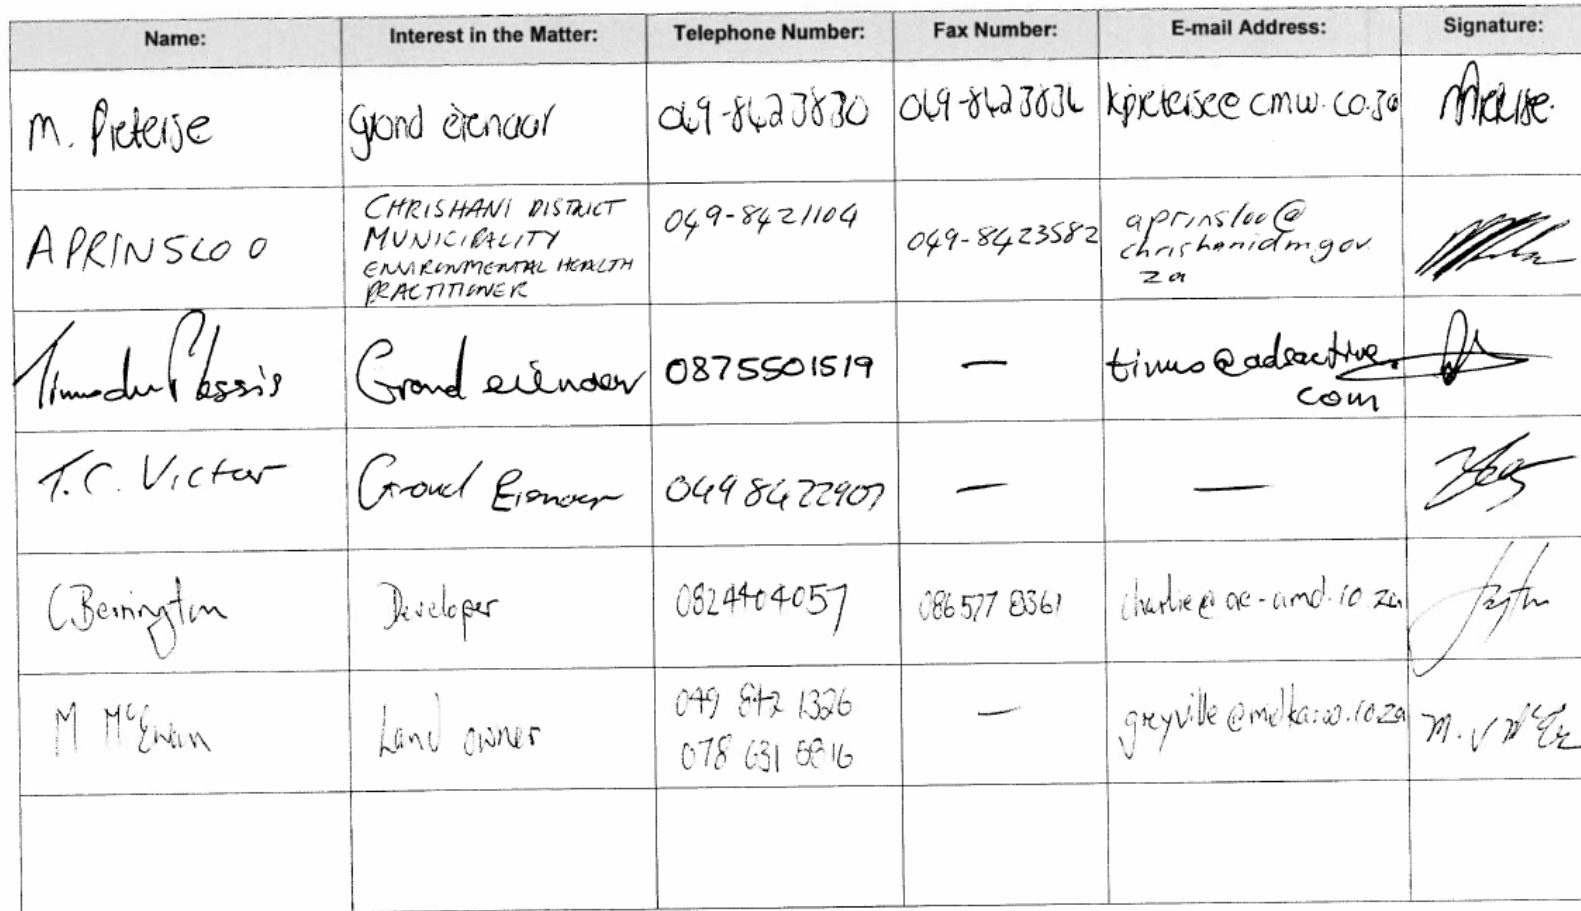 Name: Interest in the Matter: Telephone Number: Fax Number: E-mail Address: Signature:
M. Pieterse grond eienaar 049-8423830 049-8423834 kpieterse@cmw.co.za
A PRINSLOO CHRISHANI DISTRICT MUNICIPALITY ENVIRONMENTAL HEALTH PRACTITIONER 049-8421104 049-8423582 aprinsloo@chrishanidm.gov.za
Timus du Plessis Grond eienaar 0875501519 — timus@adsactive.com
T.C. Victor Grond Eienaar 049 8422907 — —
C Berrington Developer 0824404057 086 577 8361 charlie@ae-amd.co.za
M McEwan Land owner 049 842 1326 — greyville@mdkaroo.co.za M. v McE
078 631 5816